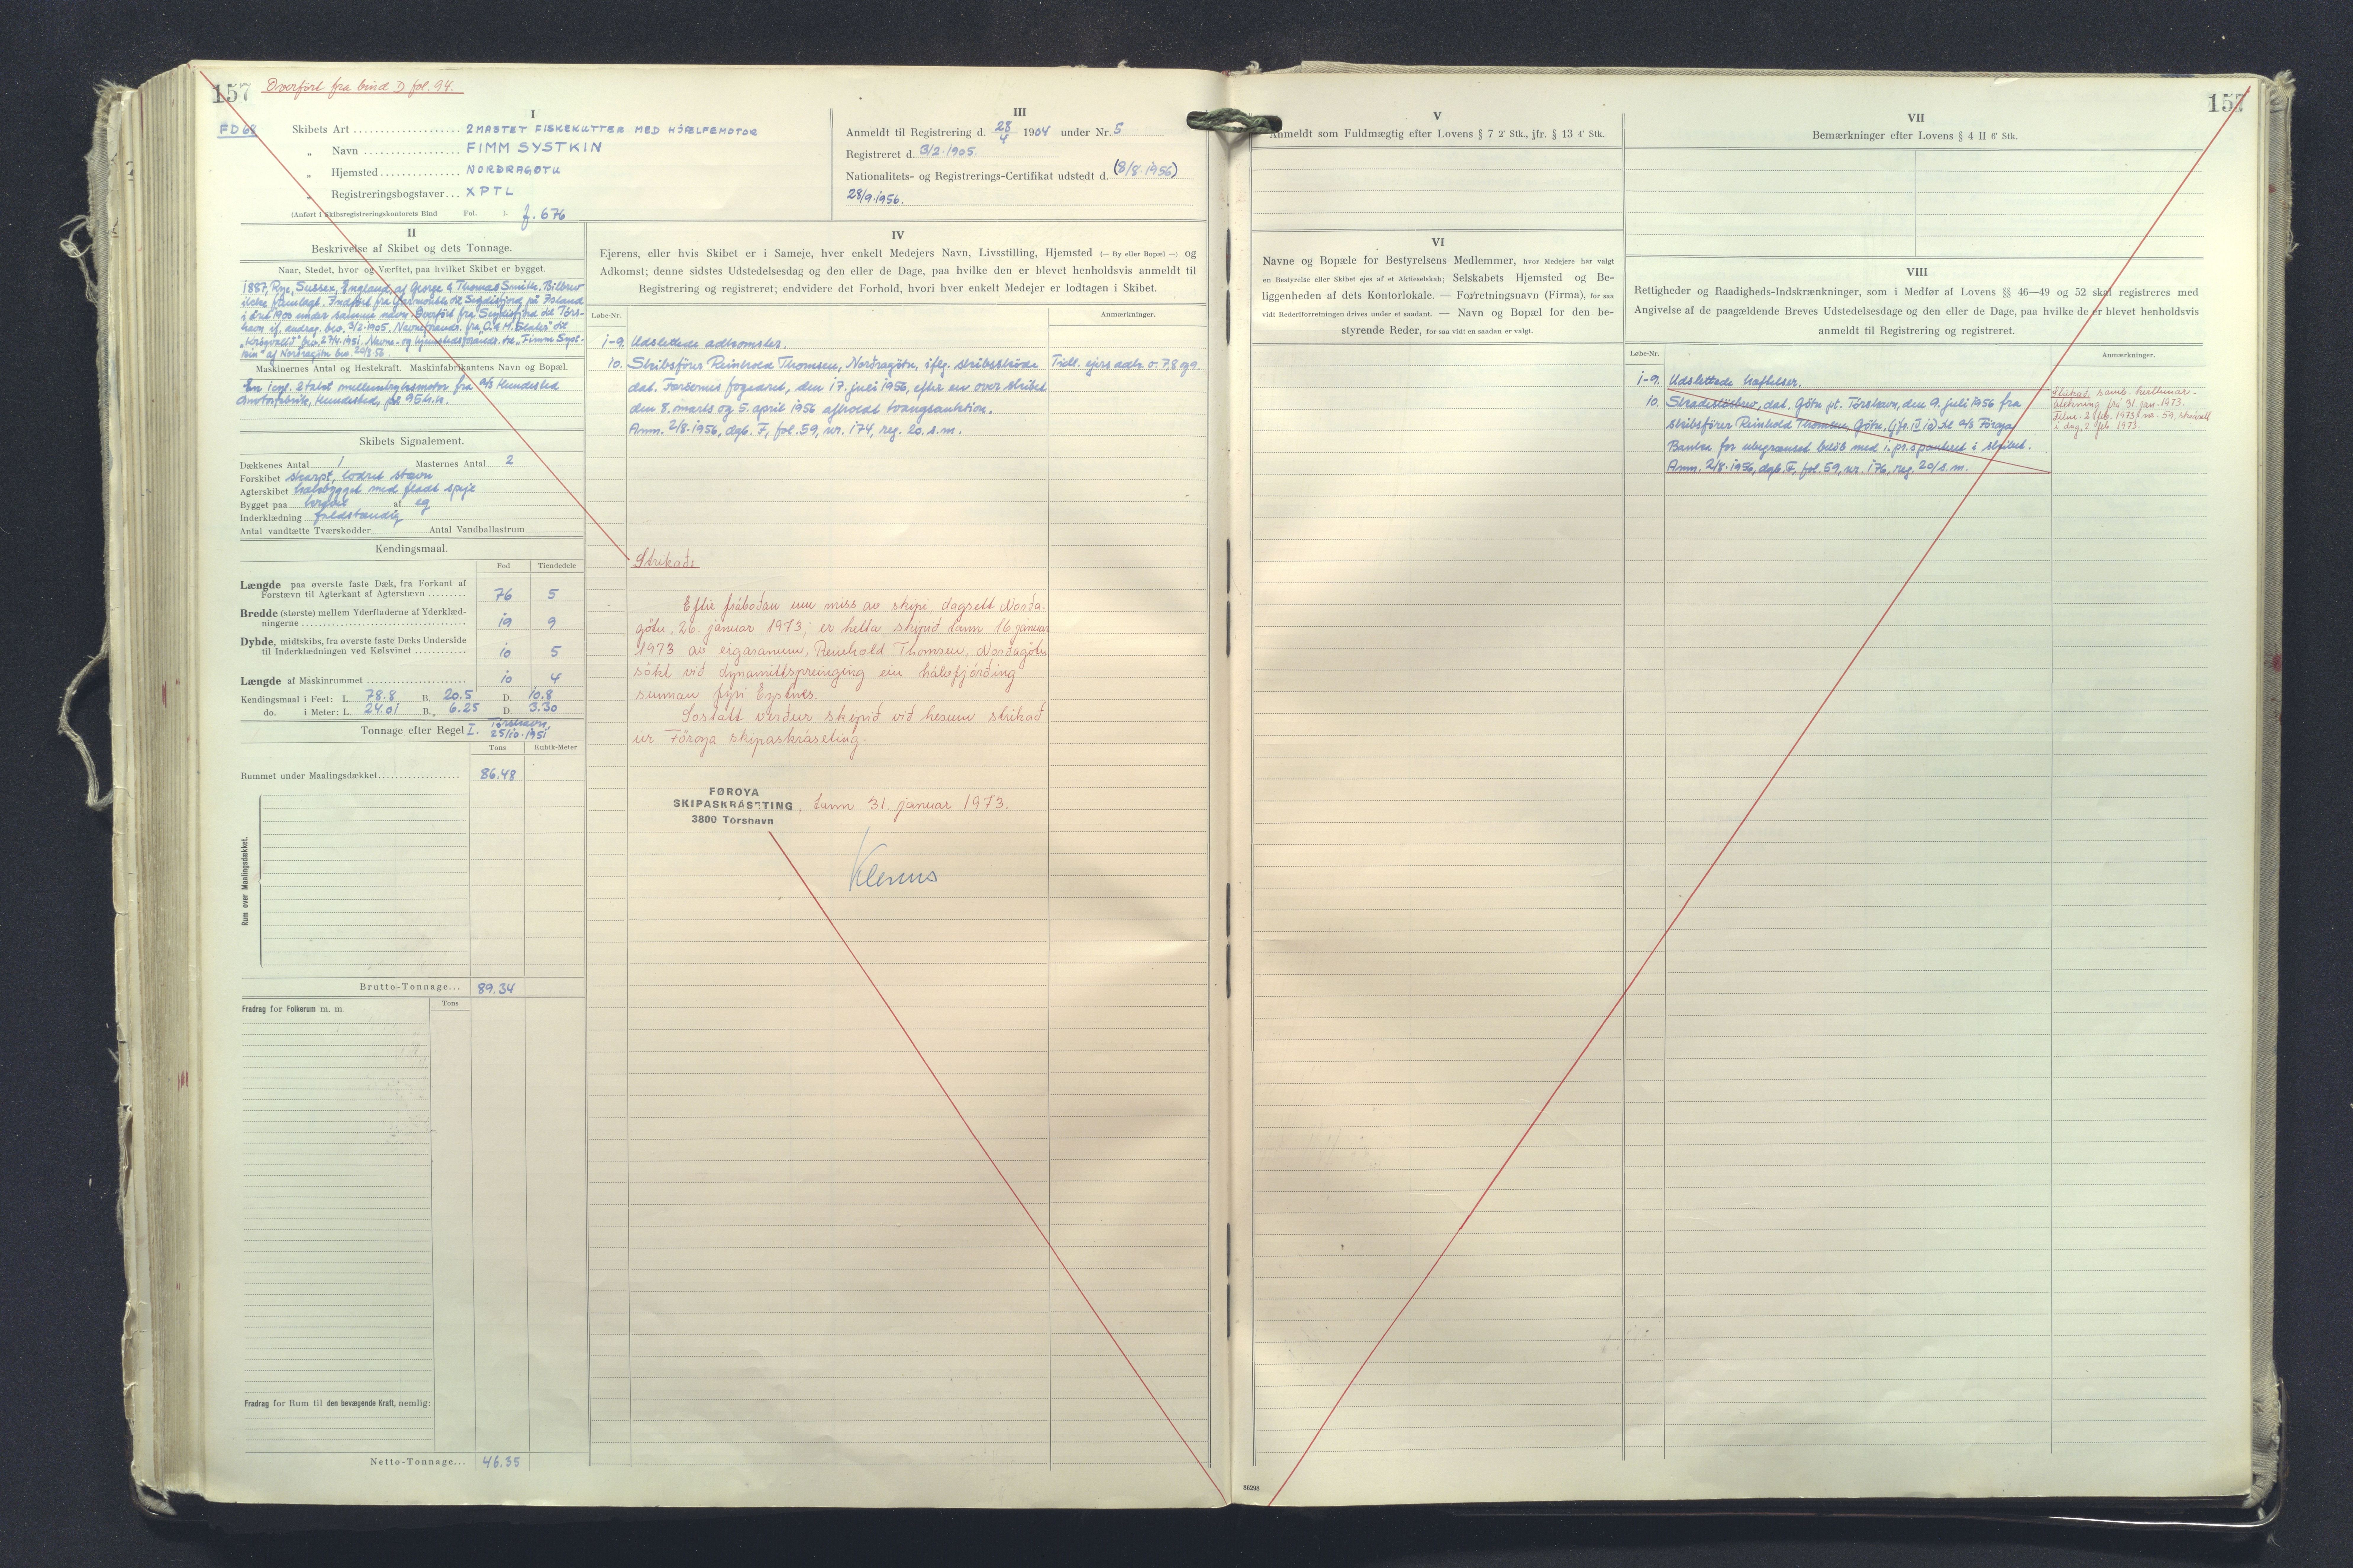 157 Overført fra bind D fol. 94.
FD 68
I
Skibets Art 2 MASTET FISKEKUTTER MED HJÆLPEMOTOR
„ Navn FIMM SYSTKIN
„ Hjemsted NORÐRAGØTU
„ Registreringsbogstaver XPTL
(Anført i Skibsregistreringskontorets Bind Fol. ). f. 676
III
Anmeldt til Registrering d. 28/4 1904 under Nr. 5
Registreret d. 3/2-1905.
Nationalitets- og Registrerings-Certifikat udstedt d. (8/8-1956)
28/9-1956.
II
Beskrivelse af Skibet og dets Tonnage.
Naar, Stedet, hvor og Værftet, paa hvilket Skibet er bygget.
1887, Rye, Sussex, England, af George & Thomas Smith. Bilbrev
ikke fremlagt. Indført fra Yarmouth til Seydisfjord på Island
i året 1900 under samme navn. Overført fra Seydisfjord til Tórs-
havn if. andrag. bev. 3/2-1905. Navneforandr. fra
bev. 27/4-1951. Navne- og hjemstedsforandr. til „Fimm Syst-
kin" af Norðragøtu bev. 20/8-56.
Maskinernes Antal og Hestekraft. Maskinfabrikantens Navn og Bopæl.
En 1 cyl. 2 takt mellemtryksmotor fra A/S Hundested
Motorfabrik, Hundested, på 95 h.k.
Skibets Signalement.
Dækkenes Antal 1 Masternes Antal 2
Forskibet skarpt, lodret stævn
Agterskibet hækbygget med fladt spejl
Bygget paa kravel af eg
Inderklædning fuldstændig
Antal vandtætte Tværskodder Antal Vandballastrum
Kendingsmaal.
Fod Tiendedele
Længde paa øverste faste Dæk, fra Forkant af
Forstævn til Agterkant af Agterstævn 76 5
Bredde (største) mellem Yderfladerne af Yderklæd-
ningerne 19 9
Dybde, midtskibs, fra øverste faste Dæks Underside
til Inderklædningen ved Kølsvinet 10 5
Længde af Maskinrummet 10 4
Kendingsmaal i Feet: L. 78.8 B. 20.5 D. 10.8
do. i Meter: L. 24.01 B. 6.25 D. 3.30
Tonnage efter Regel I. Tórshavn, 25/10-1951
Tons Kubik-Meter
Rummet under Maalingsdækket 86.48
Rum over Maalingsdækket.
Brutto-Tonnage... 89.34
Tons
Fradrag for Folkerum m. m.
Fradrag for Rum til den bevægende Kraft, nemlig:
Netto-Tonnage... 46.35
IV
Ejerens, eller hvis Skibet er i Sameje, hver enkelt Medejers Navn, Livsstilling, Hjemsted (— By eller Bopæl —) og
Adkomst; denne sidstes Udstedelsesdag og den eller de Dage, paa hvilke den er blevet henholdsvis anmeldt til
Registrering og registreret; endvidere det Forhold, hvori hver enkelt Medejer er lodtagen i Skibet.
Løbe-Nr. Anmærkninger.
1-9. Udslettede adkomster.
10. Skibsfører Reinhold Thomsen, Norðragøtu, iflg. skibsskøde Tidl. ejers adk. o. 7, 8 og 9.
dat. Færøernes fogedret, den 17. juli 1956, efter en over skibet
den 8. marts og 5. april 1956 afholdt tvangsauktion.
Anm. 2/8-1956, dgb. F, fol. 59, nr. 174, reg. 20. s.m.
Strikað:
Eftir fráboðan um miss av skipi, dagsett Norða-
gøtu, 26. januar 1973, er hetta skipið tann 16. januar
1973 av eigaranum, Reinhold Thomsen, Norðagøtu
søkt við dynamittspreinging ein hálvfjórðing
sunnan fyri Eystnes.
Sostatt verður skipið við hesum strikað
úr Føroya skipaskráseting.
FØROYA
SKIPASKRÁSETING, tann 31. januar 1973.
3800 Tórshavn
157
V
Anmeldt som Fuldmægtig efter Lovens § 7 2' Stk., jfr. § 13 4' Stk.
VI
Navne og Bopæle for Bestyrelsens Medlemmer, hvor Medejere har valgt
en Bestyrelse eller Skibet ejes af et Aktieselskab; Selskabets Hjemsted og Be-
liggenheden af dets Kontorlokale. — Forretningsnavn (Firma), for saa
vidt Rederiforretningen drives under et saadant. — Navn og Bopæl for den be-
styrende Reder, for saa vidt en saadan er valgt.
VII
Bemærkninger efter Lovens § 4 II 6' Stk.
VIII
Rettigheder og Raadigheds-Indskrænkninger, som i Medfør af Lovens §§ 46—49 og 52 skal registreres med
Angivelse af de paagældende Breves Udstedelsesdage og den eller de Dage, paa hvilke de er blevet henholdsvis
anmeldt til Registrering og registreret.
Løbe-Nr. Anmærkninger.
1-9. Udslettede hæftelser.
10. Skadesløsbrev, dat. Gøtu pt. Tórshavn, den 9. juli 1956 fra
skibsfører Reinhold Thomsen, Gøtu, (jfr. IV 10) til A/S Føroya
Banka for ubegrænset beløb med 1. pr. s panteret i skibet.
Anm. 2/8-1956, dgb. F, fol. 59, nr. 176, reg. 20/s.m.
Strikað, samb. kvittunar-
átekning frá 31. jan. 1973.
2. feb. 1973 nr. 59,
í dag, 2. feb. 1973.
86298